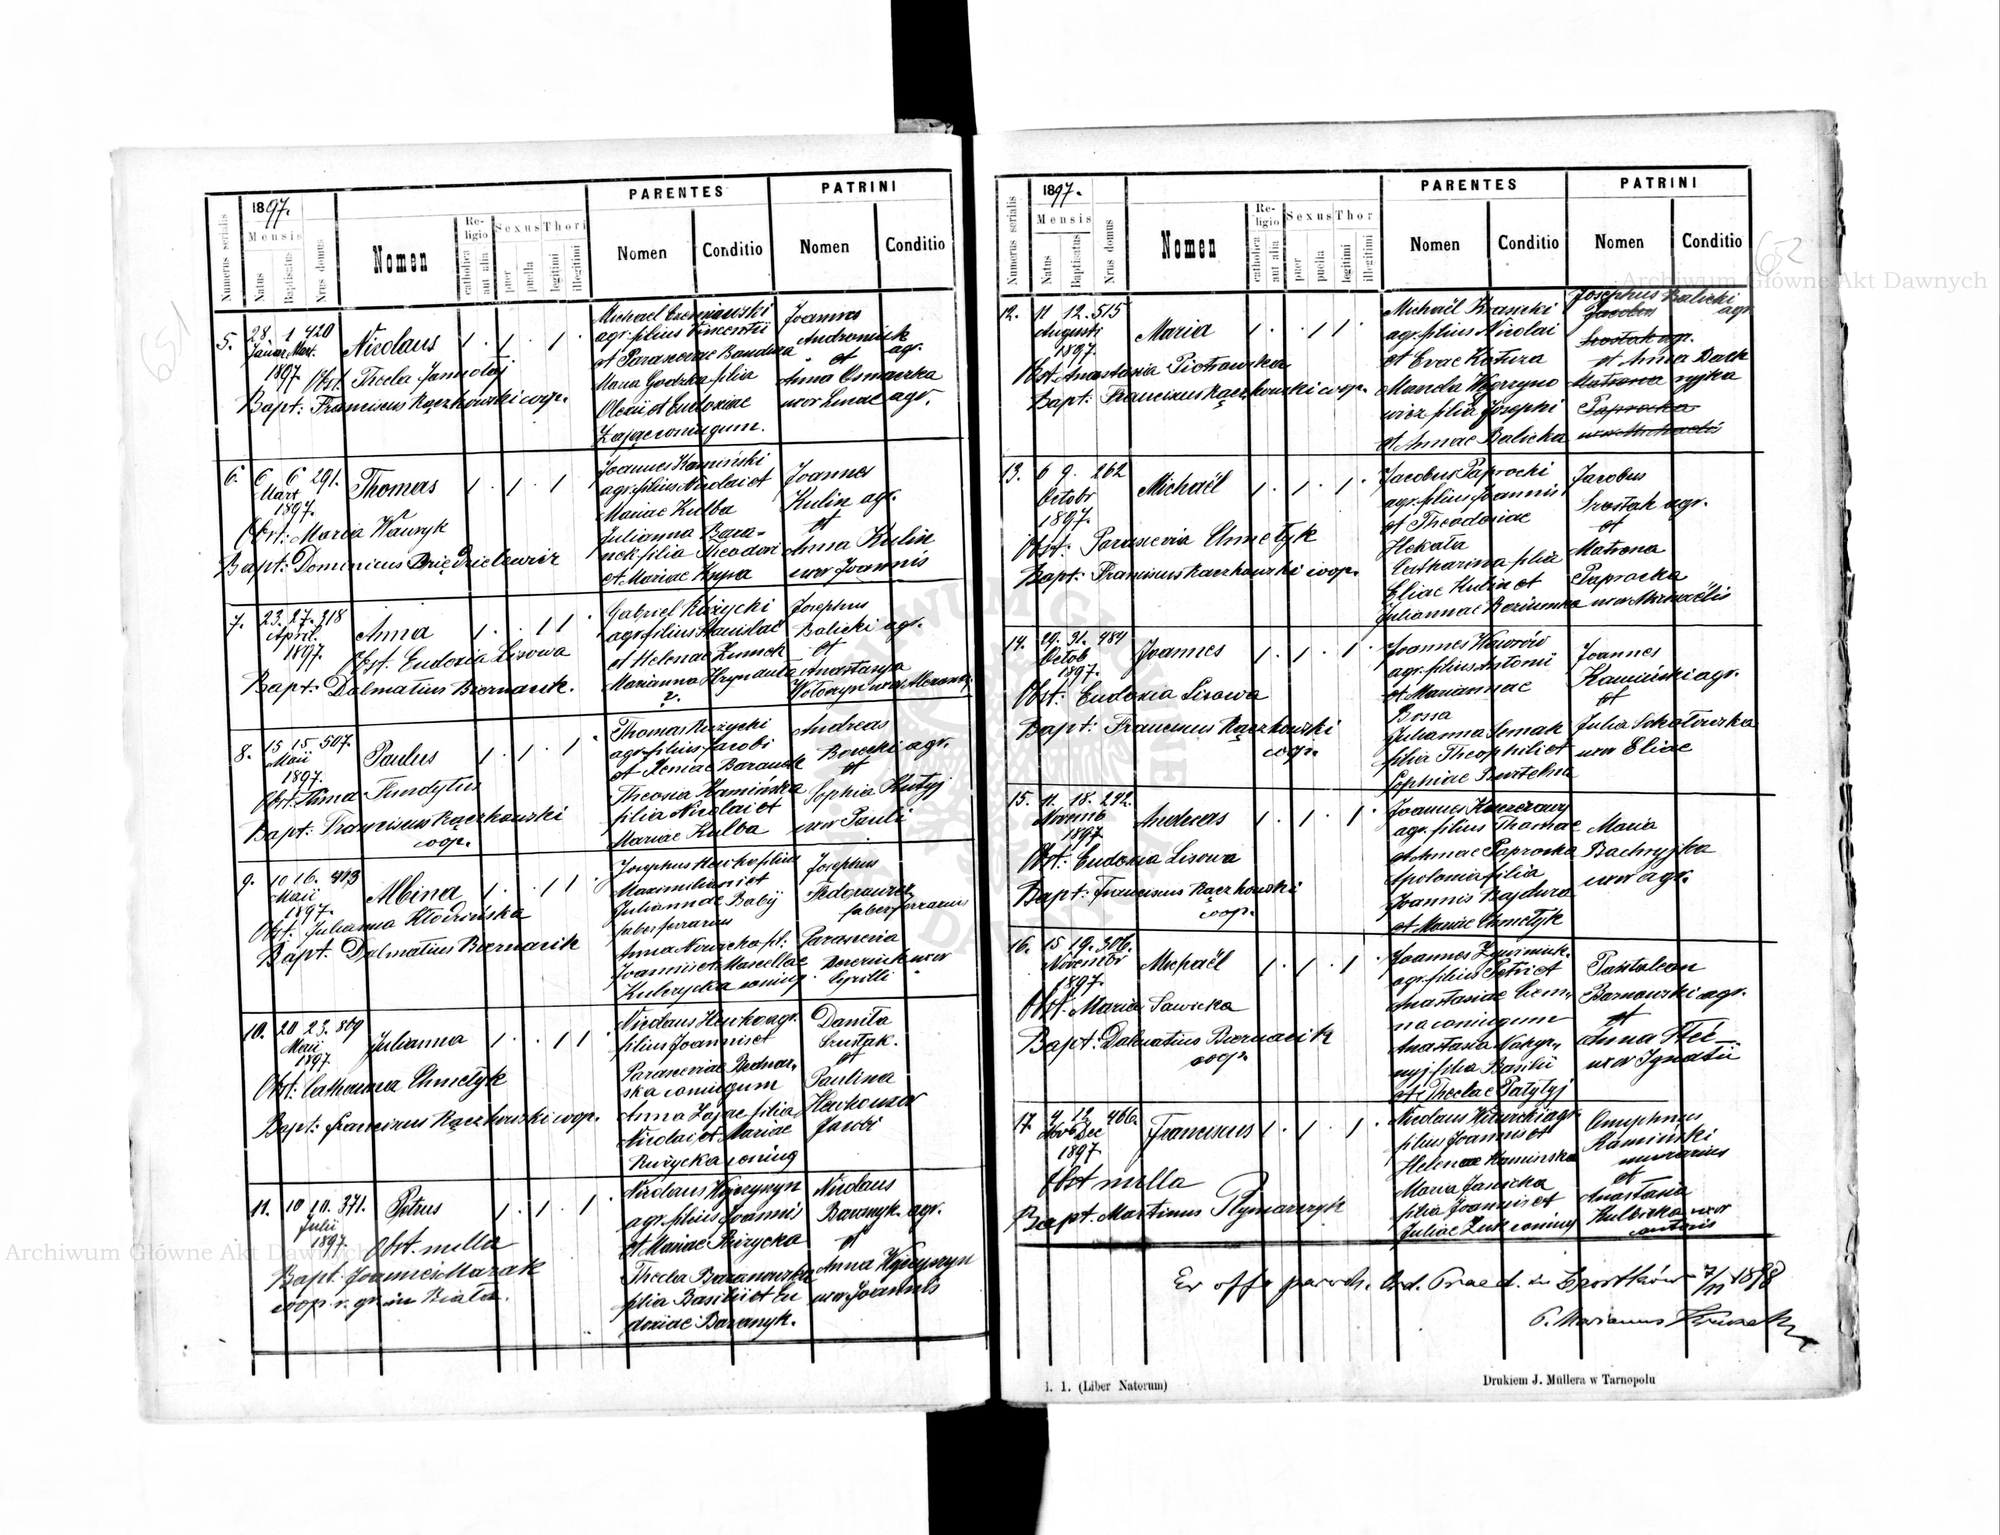 1897.
PARENTES
PATRINI
Numerus serialis
Mensis
Natus
Baptisatus
Nrus domus
Nomen
Religio
catholica
aut alia
Sexus
puer
puella
Thori
legitimi
illegitimi
Nomen
Conditio
Nomen
Conditio
5. 28 1 420
Januar Mart.
1897
Nicolaus 1 . 1 . 1 .
Obst. Thecla
Bapt: Franciscus Rączkowski coop.
Michael
agr. filius Vincentii
et Parasceviae Bandura
Maria Godzka filia
Olexii et Eudoxiae
Zając coniugum.
Joannes
Andronnik
et agr.
Anna
uxor agr.
6. 6 6 291.
Mart
1897.
Thomas 1 . 1 . 1
Obst: Maria Wawryk
Bapt: Dominicus Brzędzielewicz
Joannes Kamiński
agr. filius Nicolai et
Mariae Kulba
Julianna Bara=
nek filia Theodori
et Mariae Krysa
Joannes
Kulix agr.
et
Anna Kulix
uxor Joannis
7. 23. 27. 218
April.
1897.
Anna 1 . . 1 1
Obst. Eudoxia Lisowa
Bapt: Dalmatius Biernacik.
Gabriel Różycki
agr. filius Stanislai
et Helenae
Marianna Hrynauta
?.
Josephus
Balicki agr.
et
Anastasya
Wołoszyn uxor
8. 15 15. 507.
Maii
1897.
Paulus 1 . 1 . 1
Obst: Anna Fundytus
Bapt: Franciscus Rączkowski
coop.
Thomas Różycki
agr. filius Jacobi
et Xeniae Baranek
Theosia Kamińska
filia Nicolai et
Mariae Kulba
Andreas
Borecki agr.
et
Sophia Kutyj
uxor Pauli
9. 10 16. 443
Maii
1897.
Albina 1 . . 1 1
Obst. Julianna Kłodzińska
Bapt: Dalmatius Biernacik
Josephus Hewko filius
Maximiliani et
Juliannae Babij
faber ferrarius
Anna Nowicka fil:
Joannis et Marcellae
Kulczycka coniug.
Josephus
Fedorowicz
faber ferrarius
Parascevia
uxor
Cyrilli
10. 20 23.
Maii
1897.
Julianna 1 . . 1 1
Obst: Catharina Chmełyk
Bapt: Franciscus Rączkowski coop.
Nicolaus Hewko agr.
filius Joannis et
Parasceviae Bednar=
ska coniugum
Anna Zając filia
Nicolai et Mariae
Różycka coniug
Daniła
Szustak.
et
Paulina
Hewko uxor
Jacobi
11. 10 10. 371.
Julii
1897.
Petrus 1 . 1 . 1
Obst. nulla
Bapt. Joannes Marak
coop. r. gr. in Biała.
Nicolaus
agr. filius Joannis
et Mariae Różycka
Thecla Baranowska
filia Basilii et Eu
doxiae Baranyk.
Nicolaus
Baranyk. agr.
et
Anna
uxor Joannis
1897.
PARENTES
PATRINI
Numerus serialis
Mensis
Natus
Baptisatus
Nrus domus
Nomen
Religio
catholica
aut alia
Sexus
puer
puella
Thor
legitimi
illegitimi
Nomen
Conditio
Nomen
Conditio
62
12. 11 12. 515
Augusti
1897.
Maria 1 . . 1 1 .
Obst Anastasia Piotrowska
Bapt: Franciscus Rączkowski coop.
Michaël Krasicki
agr. filius Nicolai
et Evae Katura
Manda Węgrzyno
wicz filia Josephi
et Annae Balicka
Josephus Balicki
agr.
Jacobus
Szostak agr.
et Anna
Matrona
Paprocka
uxor Michaelis
13. 6 9. 262
Octobr
1897.
Michaël 1 . 1 . 1 .
Obst: Parascevia Chmełyk
Bapt: Franciscus Raczkowski coop.
Jacobus Paprocki
agr. filius Joannis
et Theodosiae
Hekata
Catharina filia
Eliae Kulix et
Juliannae
Jacobus
Szostak agr.
et
Matrona
Paprocka
uxor Michaëlis
14. 29. 31. 484
Octob
1897.
Joannes 1 . 1 . 1 .
Obst: Eudoxia Lisowa
Bapt: Franciscus Rączkowski
coop.
Joannes Waworów
agr. filius Antonii
et Mariannae
Bossa
Julianna Semak
filia Theophili et
Sophiae
Joannes
Kamiński agr.
et
Julia Sokołowska
uxor Eliae
15. 11. 18. 292.
Novemb
1897.
Andreas 1 . 1 . 1 .
Obst: Eudoxia Lisowa
Bapt: Franciscus Rączkowski
coop.
Joannes
agr. filius Thomae
et Annae Paprocka
Apolonia filia
Joannis Bajdura
et Mariae Chmełyk
Maria
Bachryjka
uxor agr.
16. 15 19. 306.
Novembr
1897.
Michaël 1 . 1 . 1 .
Obst: Maria Sawicka
Bapt: Dalmatius Biernacik
coop.
Joannes
agr. filius Petri et
Anastasiae
na coniugum
Anastasia
nyj filia Basilii
et Theclae Patytyj
Pantaleon
Barnowski agr.
et
Anna
uxor Ignatii
17. 4 12 466.
Nov Dec
1897
Franciscus 1 . 1 . 1 .
Obst nulla
Bapt. Martinus Rymarczyk
Nicolaus agr.
filius Joannis et
Helenae Kamińska
Maria Janicka
filia Joannis et
Juliae coniug
Onuphrius
Kamiński
murarius
et
Anastasia
Kulbicka uxor
Antonis
Ex offo paroch. Ord. Praed. in Czortków 7/11 1898
P. Marianus
l. 1. (Liber Natorum)
Drukiem J. Müllera w Tarnopolu
Archiwum Główne Akt Dawnych
Archiwum Główne Akt Dawnych